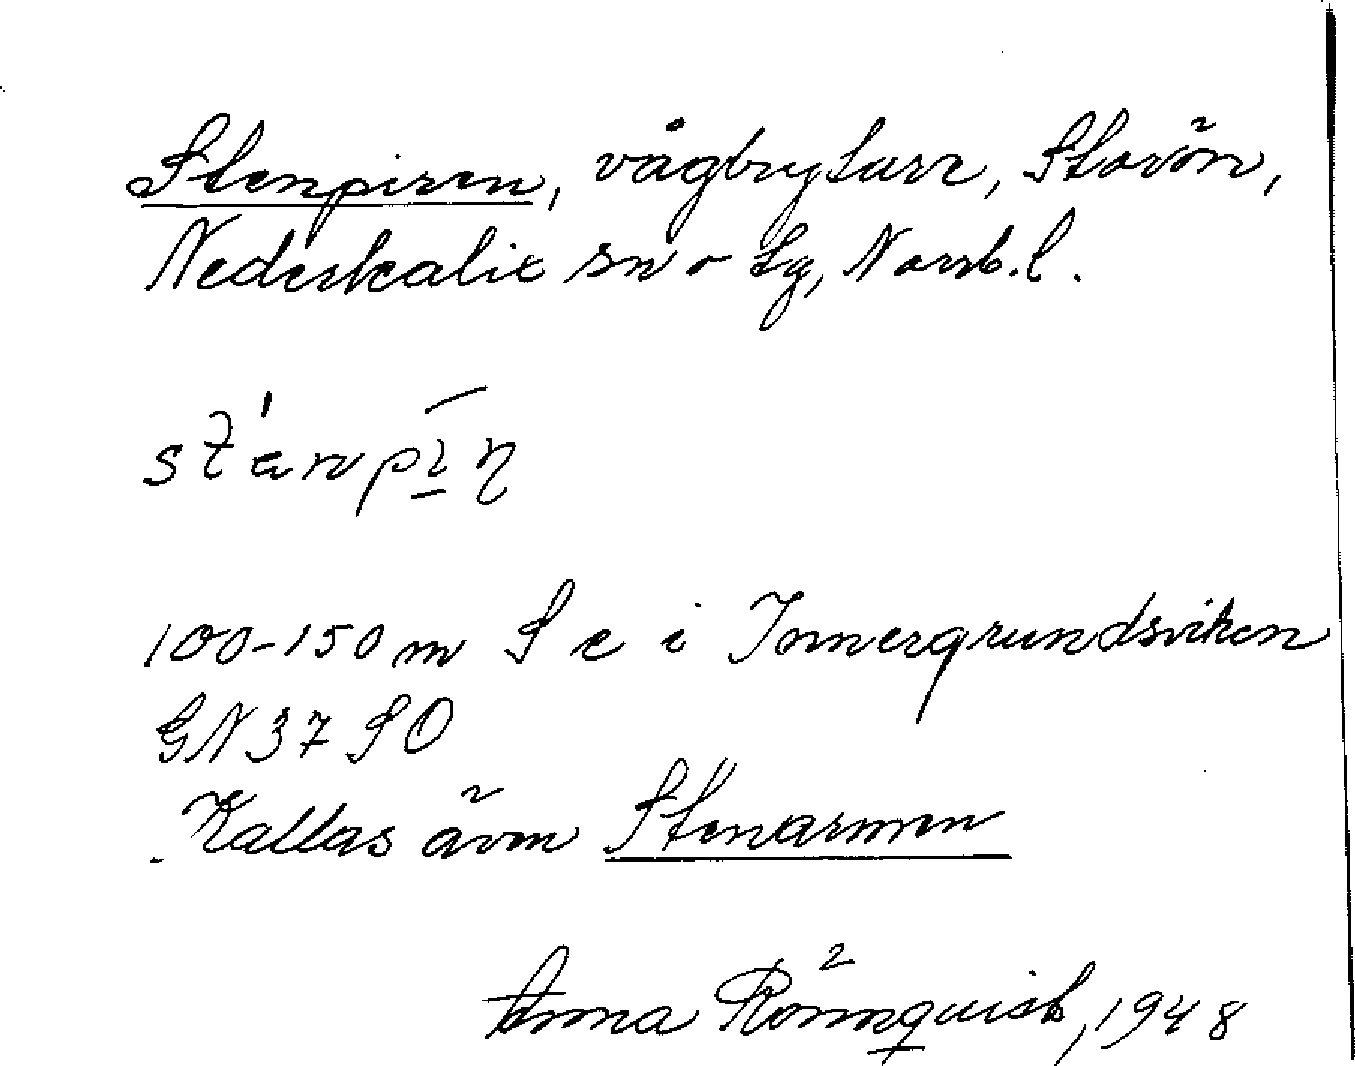 Stenpiren, vågbrytare, Storön,
Nederkalix sn o lg, Norrb. l.
100-150 m S e i Innergrundsviken
GN 37 SO
Kallas även Stenarmen
Anna Rönnquist, 1948